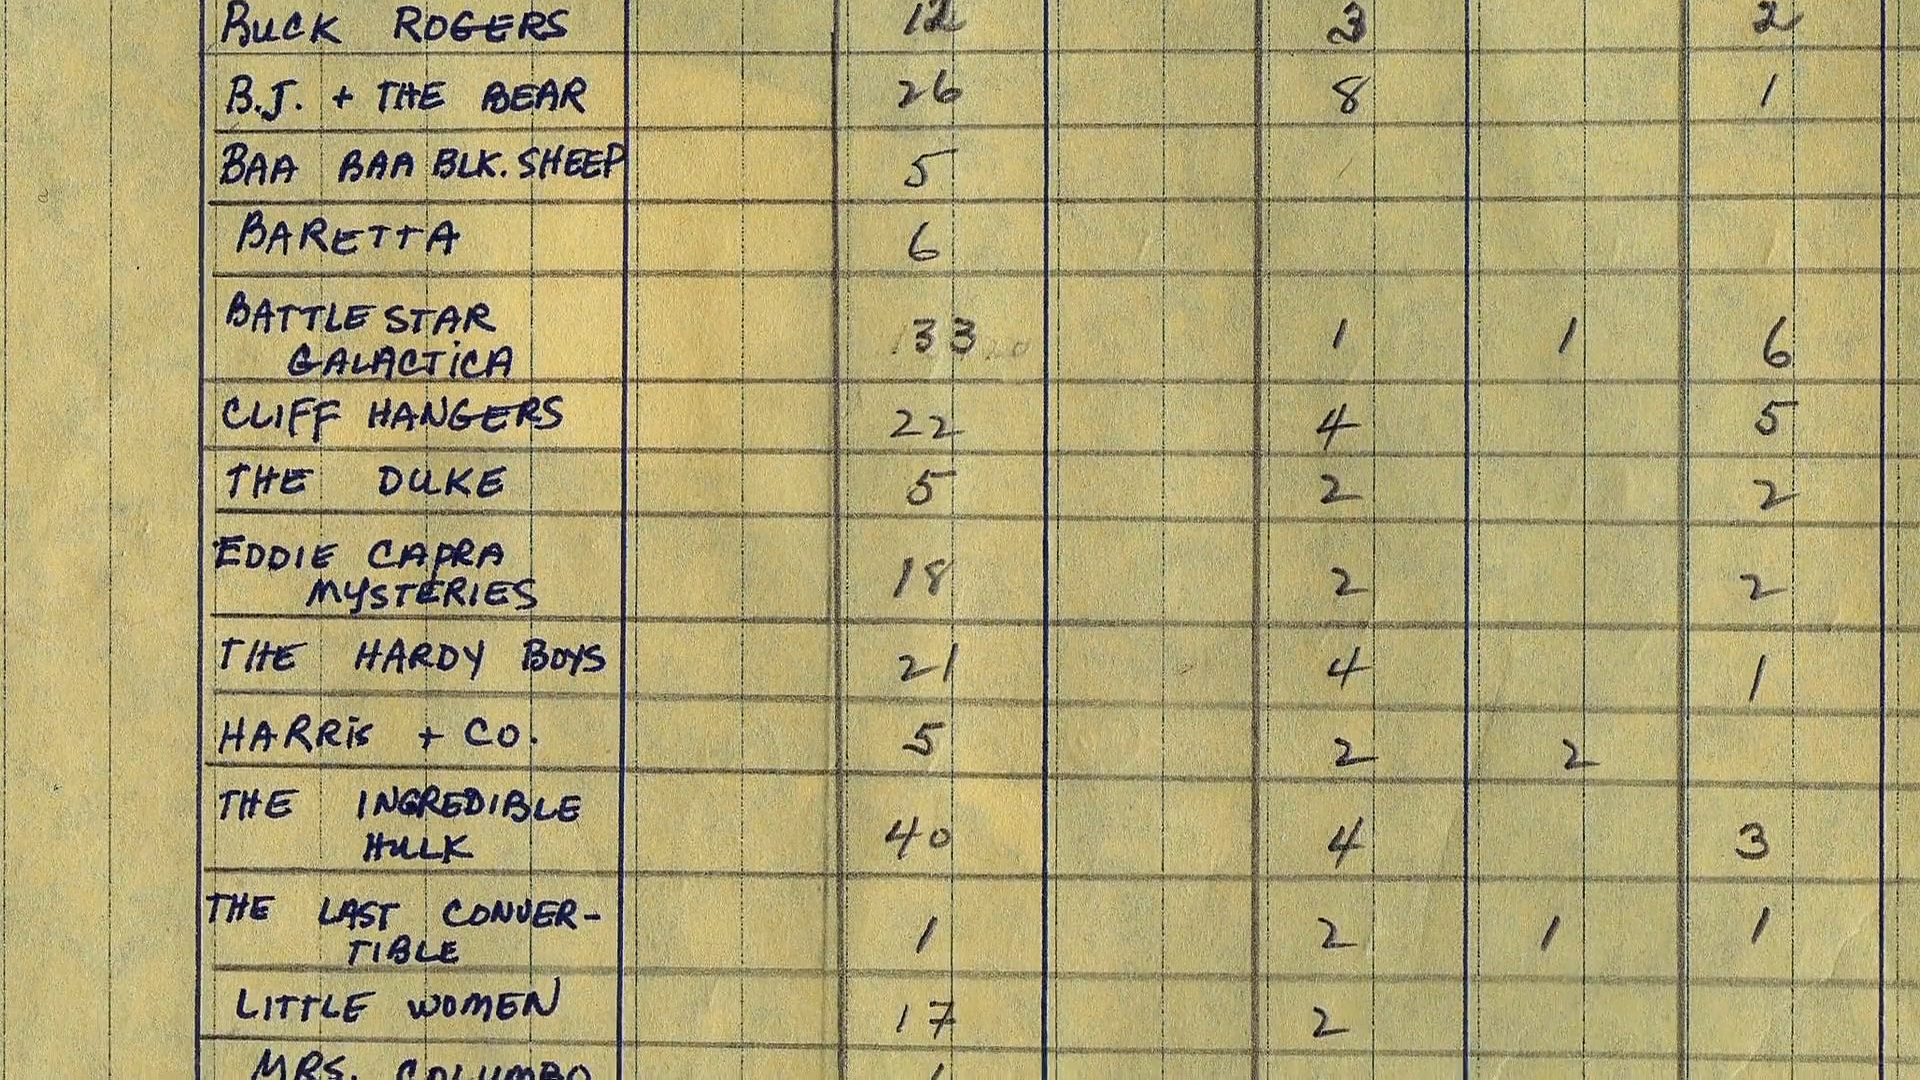 BUCK ROGERS 12 3 2
B.J. + THE BEAR 26 8 1
BAA BAA BLK. SHEEP 5
BARETTA 6
BATTLESTAR
GALACTICA 33 1 1 6
CLIFF HANGERS 22 4 5
THE DUKE 5 2 2
EDDIE CAPRA
MYSTERIES 18 2 2
THE HARDY BOYS 21 4 1
HARRiS + CO. 5 2 2
THE INCREDIBLE
HULK 40 4 3
THE LAST CONVER-
TIBLE 1 2 1 1
LITTLE WOMEN 17 2
MRS. COLUMBO